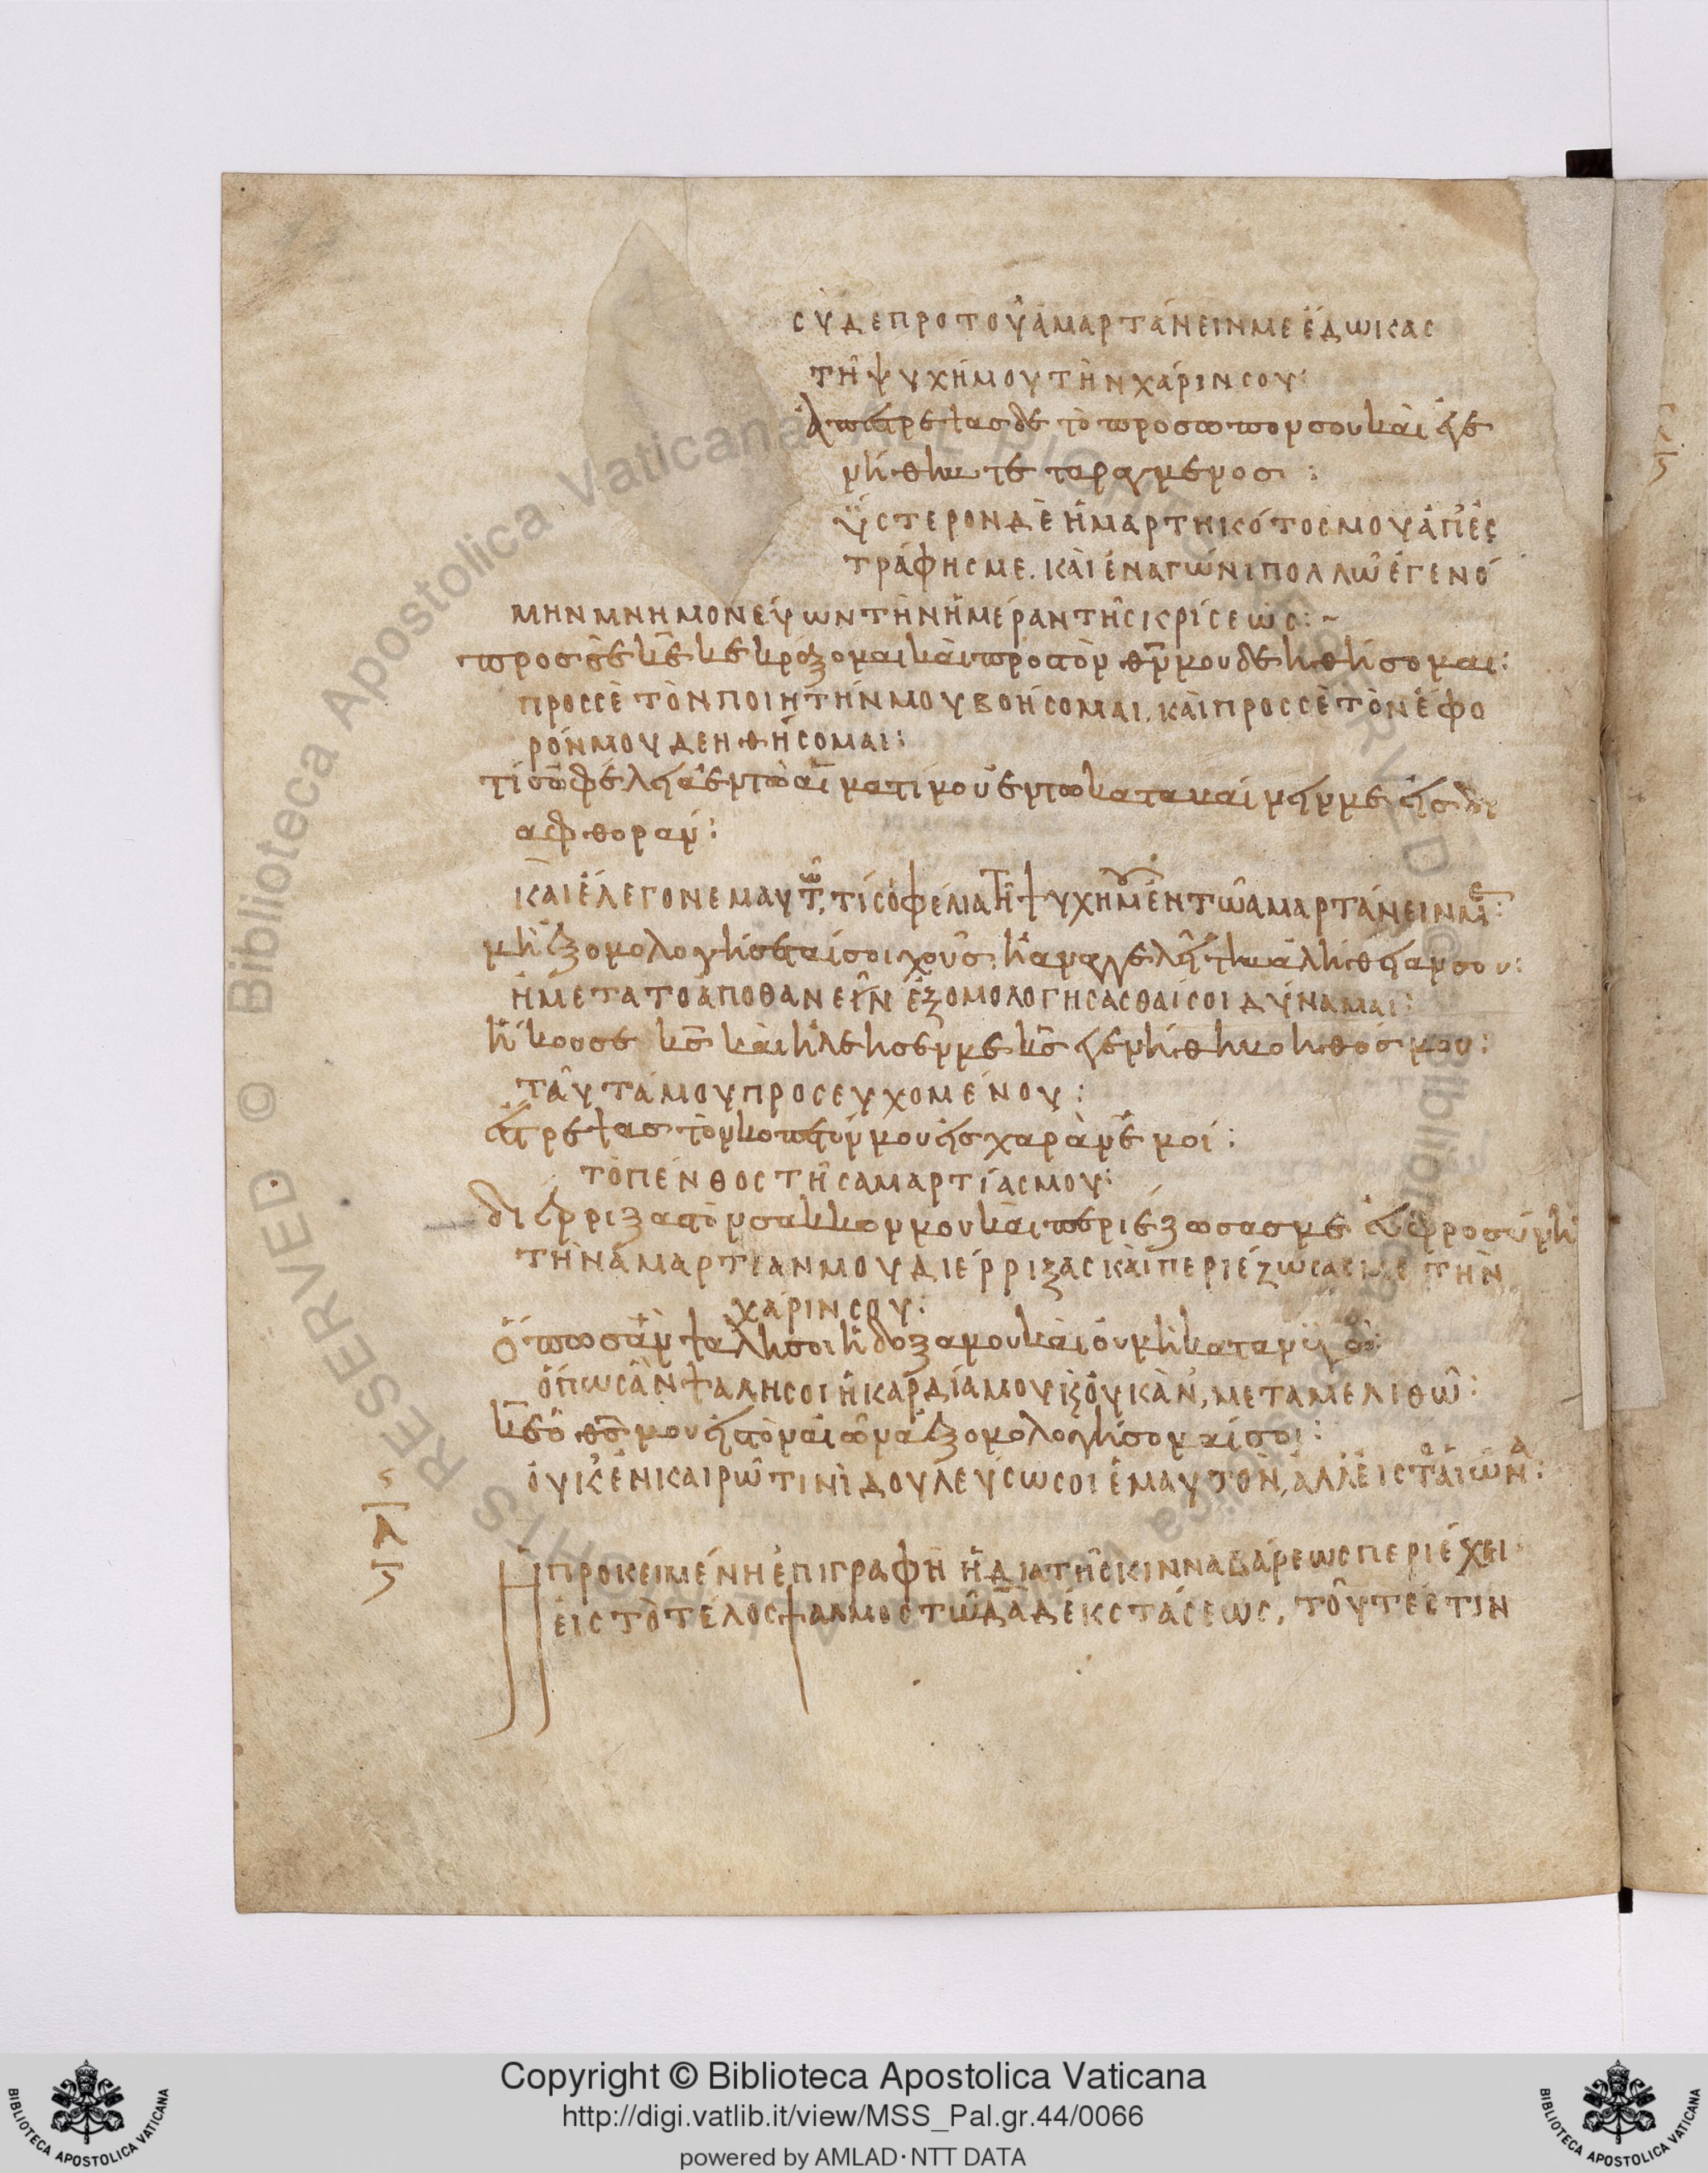 σὺ δε προ τοῦ ἁμαρτάνειν με ἔδωκας
τῆ ψυχῆ μου τὴν χάριν σου:
ἀπέστρεψας δε τὸ προσωπον σου καὶ ἐγε
νήθην τεταραγμενος:
ὕστερον δὲ ἡμαρτηκότος μου ἀπὲς
τράφης με. καὶ ἐν ἀγῶνι πολλῶ ἐγενό
μην μνημονεύων τὴν ἡμέραν τῆς κρίσεως:~
προς σὲ κε κεκράξομαι και προς τὸν θν μου δεηθήσομαι:
προς σὲ τὸν ποιητήν μου βοήσομαι. καὶ προς σὲ τὸν ἔφο
ρόν μου δεηθήσομαι:
τίς ὠφέλεια ἐν τῶ αἵματί μου ἐν τω καταβαίνειν με εἰς δι
αφθοραν:
και ἔλεγον εμαυτῶ, τίς ὀφέλια τῆ ψυχῆ μου ἐν τῶ αμαρτάνειν με:
μὴ ἐξομολογήσεταί σοι χοῦς: ἢ αναγγελεῖ τὴν ἀλήθειαν σου:
ἢ μετα το ἀποθανεῖν ἐξομολογησασθαί σοι δύναμαι:
ἤκουσε κς καὶ ἠλέησέν με κς ἐγενήθη βοηθός μου:
ταῦτά μου προσευχομένου:
ἔστρεψας τὸν κοπετόν μου εἰς χαρὰν ἐμοί:
τὸ πένθος τῆς αμαρτίας μου:
διέρριξας τὸν σακκον μου και περιέζωσας με εὐφροσύνη
τὴν ἁμαρτιαν μου διέρριξας καὶ περιέζωσας με τὴν
χάριν σου:
Ὅπως ἂν ψαλη σοι ἡ δοξα μου και οὐ μὴ κατανυγῶ:
ὅπως ἂν ψαλη σοι ἡ καρδία μου κ οὐκ ἂν, μεταμεληθῶ:
κε ὁ θς μου εἰς τὸν αἰῶνα ἐξομολογήσομαί σοι:
οὐκ ἐν καιρῶ τινὶ δουλεύσω σοι ἐμαυτὸν, ἀλλ εἰς τὸν αἰῶνα:
Λ
Η προκειμένη ἐπιγραφὴ ἡ δια τῆς κινναβάρεως περιέχει
εἰς τὸ τέλος ψαλμος τῶ δαδ ἐκστάσεως, τοῦτέστιν
Copyright © Biblioteca Apostolica Vaticana
http://digi.vatlib.it/view/MSS_Pal.gr.44/0066
powered by AMLAD·NTT DATA
BIBLIOTECA APOSTOLICA VATICANA
BIBLIOTECA APOSTOLICA VATICANA